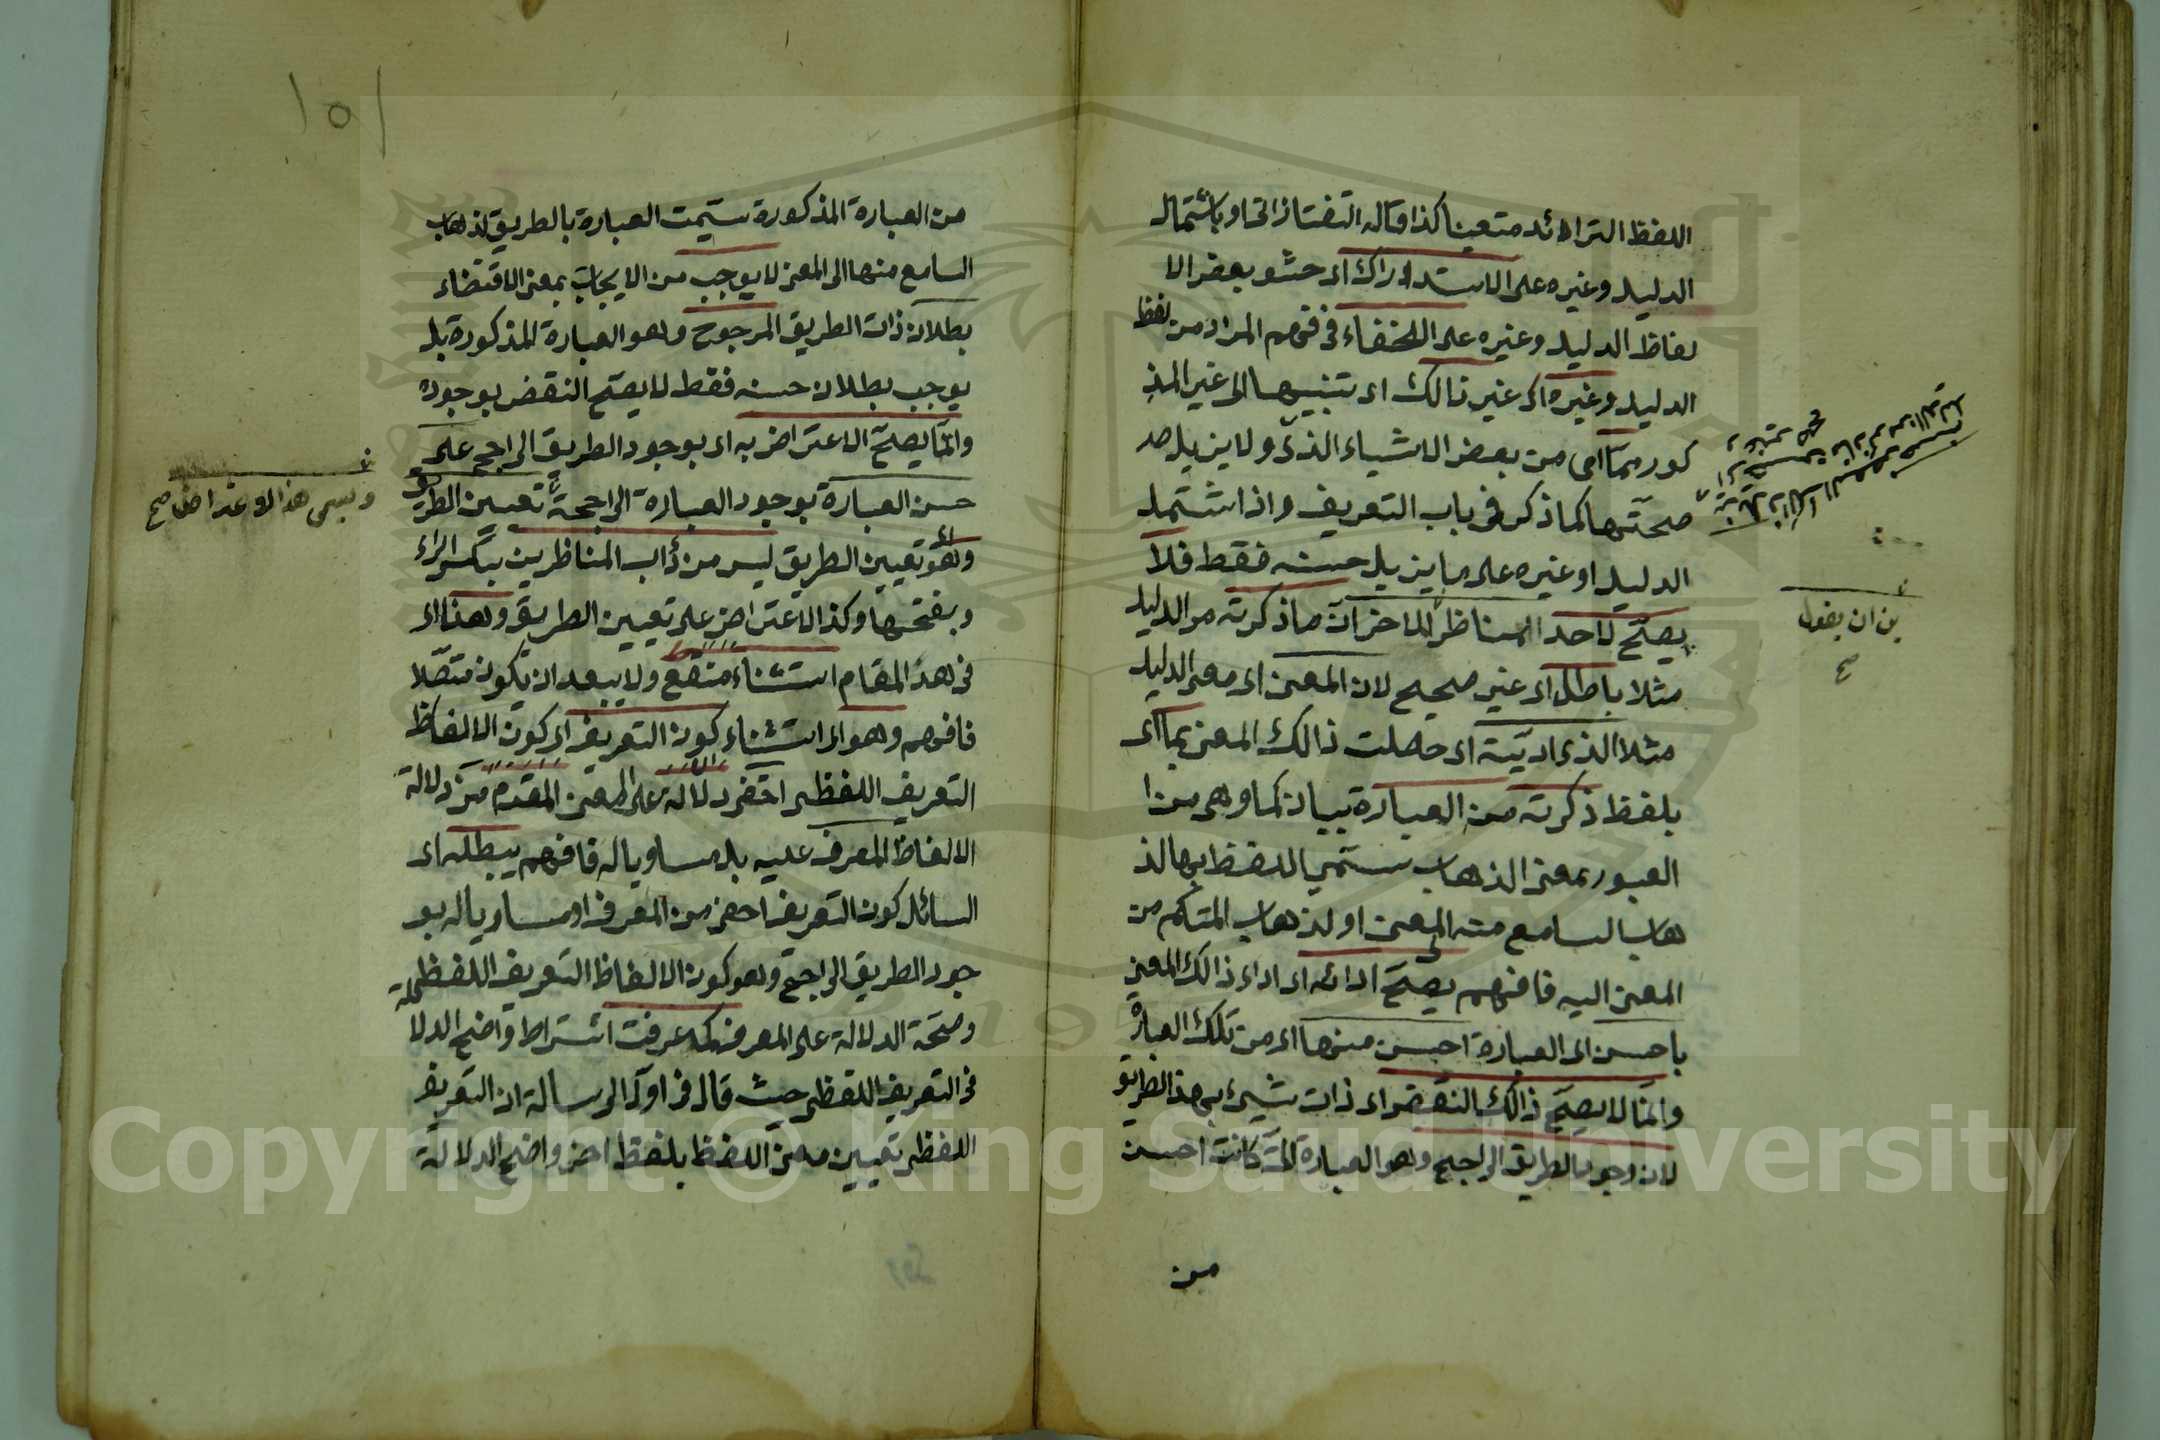 اللفظ الزائد متعينا كذا قاله التفتازانى او باشتمال
الدليل وغيره على الاستدراك اى حشو بعض الا
لفاظ الدليل وغيره على الخفاء فى فهم المراد من لفظ
الدليل وغيره اى غير ذالك اى تنبيها الى غير المذ
كور مما اى من بعض الاشياء الذى ولا يزيل صد
صحتها كما ذكر فى باب التعريف واذا اشتمل
الدليل او غيره على ما يزيل حسنه فقط فلا
يصح لاحد المناظر للاخر ان ما ذكرته من الدليل
مثلا باطل اى غير صحيح لان المعنى اى معنى الدليل
مثلا الذى اديته اى حصلت ذالك المعنى بما اى
بلفظ ذكرته من العبارة بيان كما وهى من ا
العبور بمعنى الذهاب ستمي اللفظ بها لذ
هاب السامع منه الى المعنى او لذهاب المتكلم من
المعنى اليه فافهم يصح ادائه اى اداء ذالك المعنى
باحسن اى العبارة احسن منها اى من تلك العبارة
وانما لا يصح ذالك النقض اى ذات شيء بهذ الطريق
لان وجود الطريق الراجح وهو العبارة التى كانت احسن
من
ين ان يقول
صح
١٥١
من العبارة المذكورة سميت العبارة بالطريق لذهاب
السامع منها الى المعنى لا يوجب من الايجاب بمعنى الاقتضاء
بطلان ذات الطريق المرجوح وهو العبارة المذكورة بل
يوجب بطلان حسنه فقط لا يصح النقض بوجوده
وانما يصح الاعتراض به اى بوجود الطريق الراجح على
حسن العبارة بوجود العبارة الراجحة تعيين الطريق
وهو تعيين الطريق ليس من دأب المناظرين بكسر الراء
وبفتحها وكذا الاعتراض على تعيين الطريق وهذا اى
فى هذ المقام استثناء منقطع ولا يبعد ان يكون متصلا
فافهم وهو اى استثناء كون التعريف اى كون الالفاظ
التعريف اللفظى اخفى دلالة على المعنى المقدم من دلالة
الالفاظ المعرف عليه بل مساويا له فافهم يبطله اى
السائل كون التعريف اخفى من المعرف او مساويا له بو
جود الطريق الراجح وهو كون الالفاظ التعريف اللفظى
وضحة الدلالة على المعرف كما عرفت اشتراط واضح الدلا
فى التعريف اللفظى حيث قال فى اول الرسالة ان التعريف
اللفظى تعيين معنى اللفظ بلفظ اخر واضح الدلالة
ويسمى هذا
صح
Copyright © King Saud University